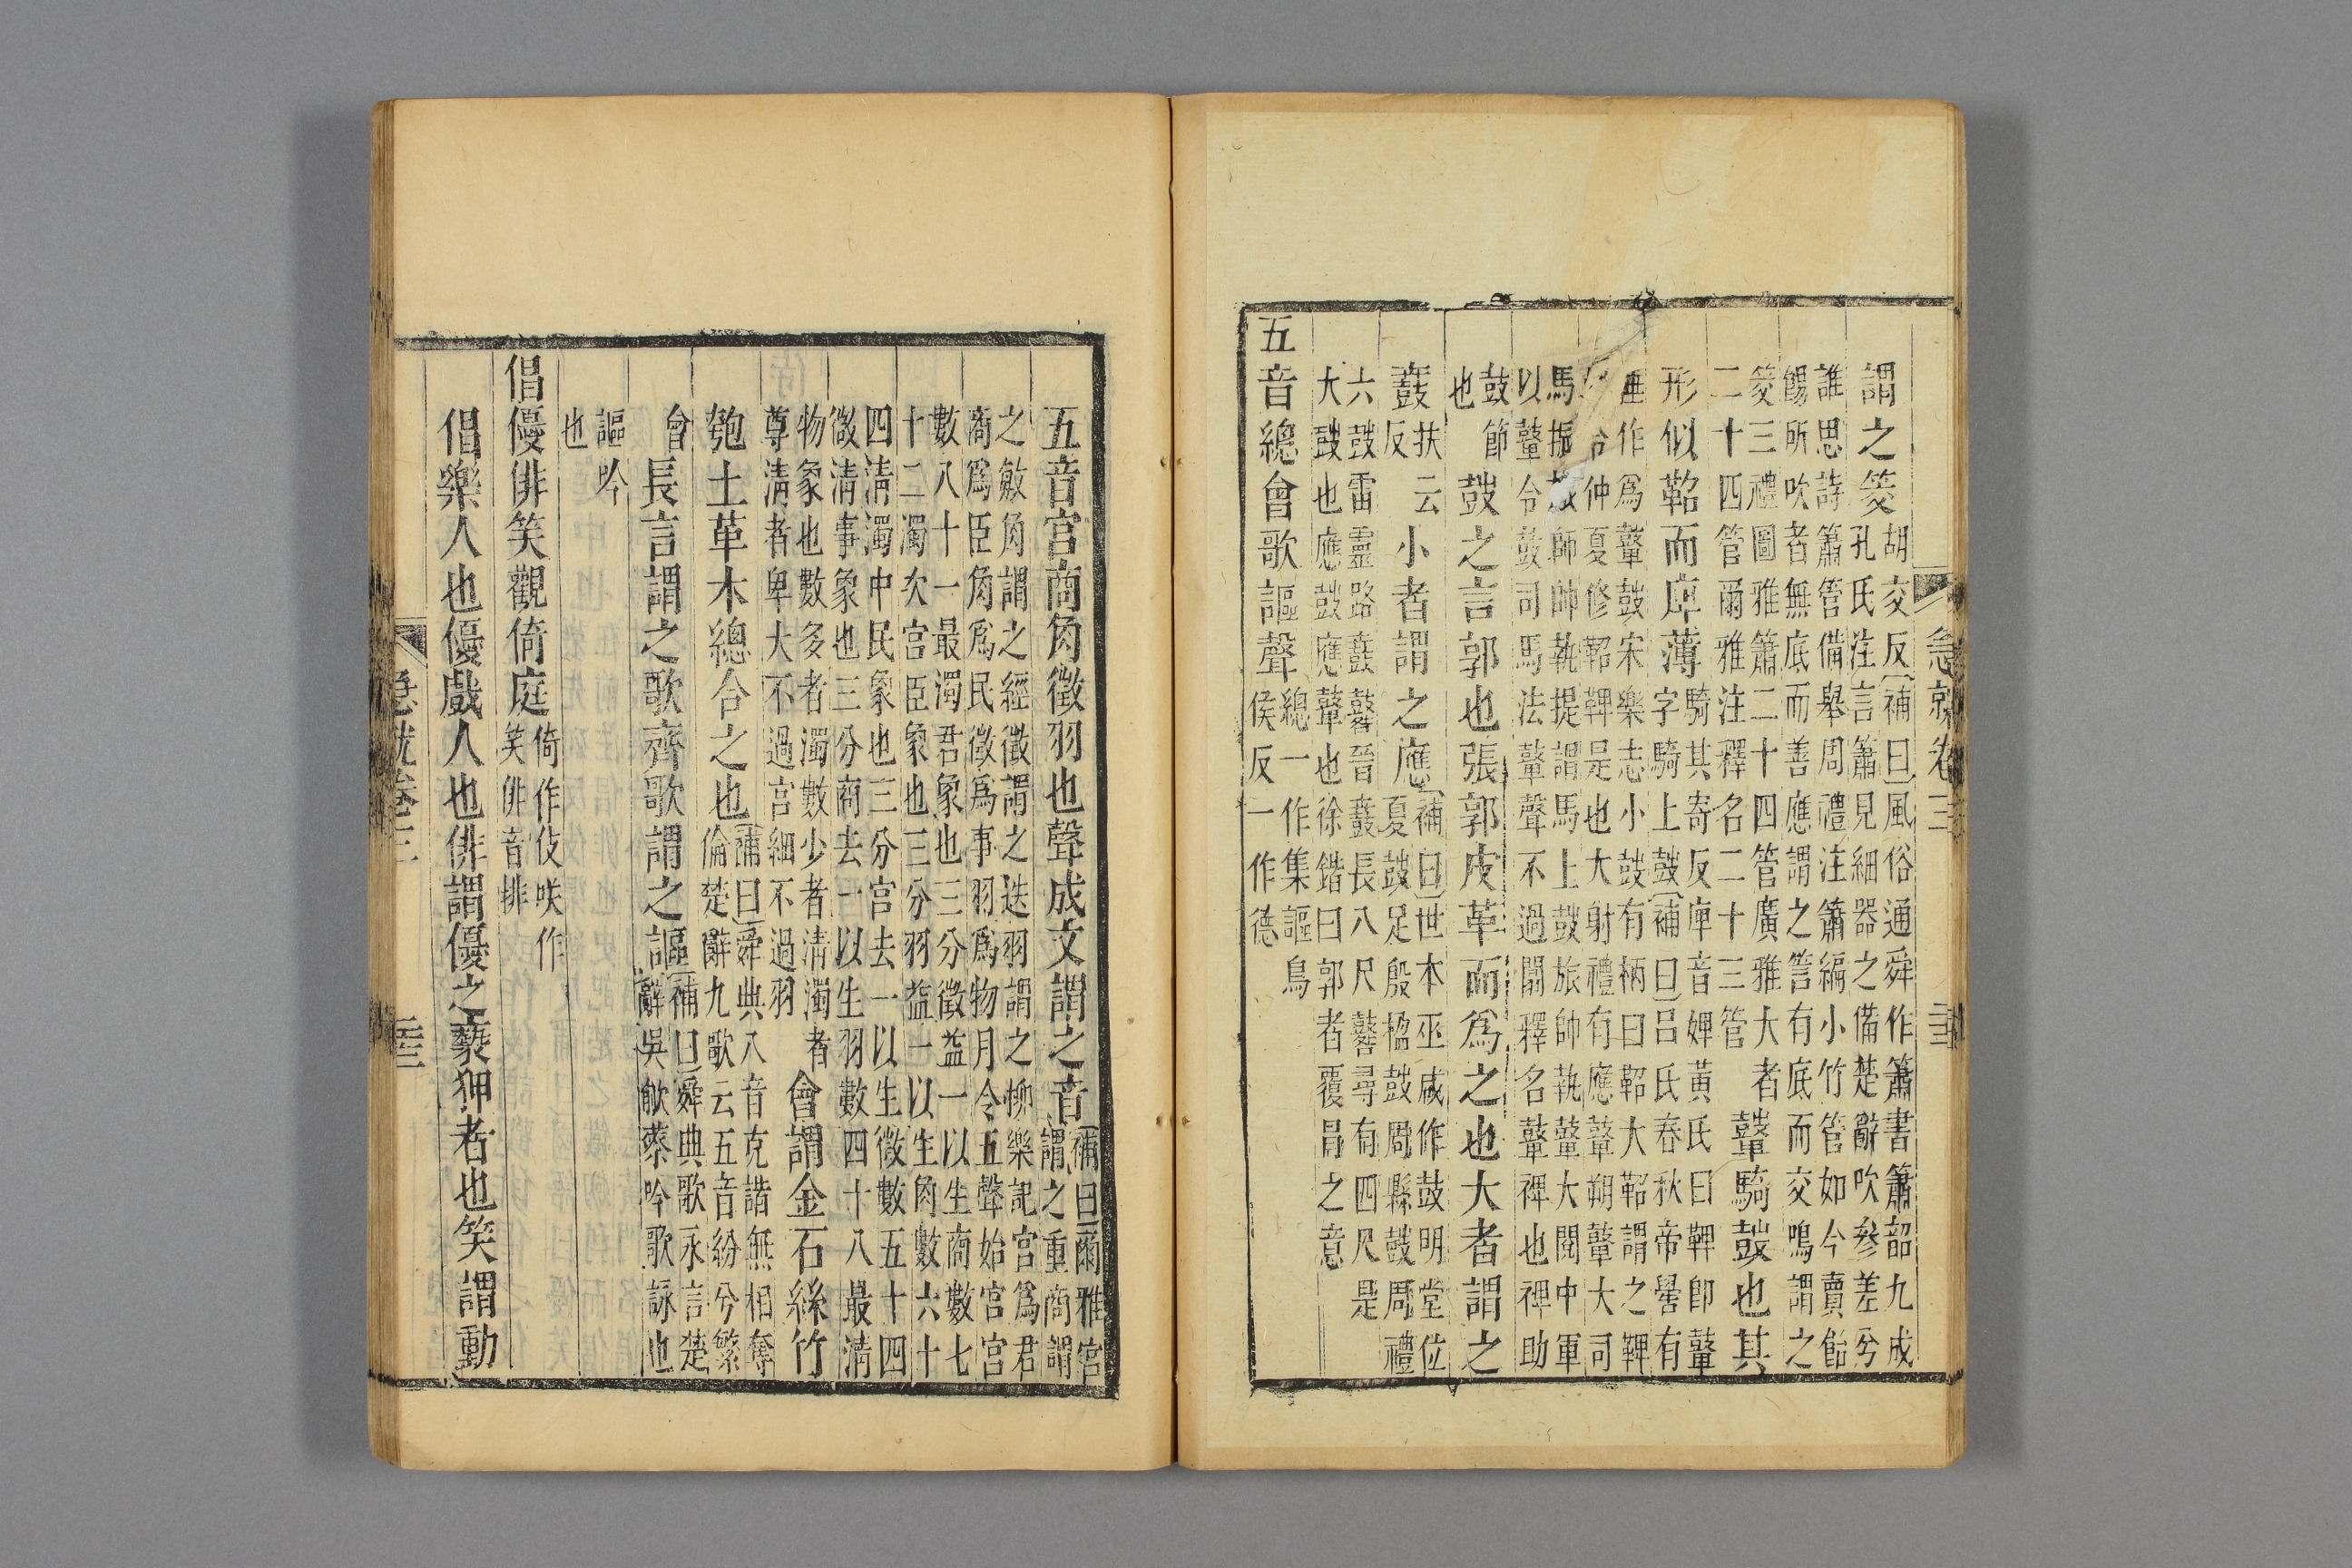 急就卷三
謂之筊胡交反〔補曰〕風俗通舜作簫書簫韶九成
孔氏注言簫見細器之備楚辭吹參差兮
誰思詩簫管備舉周禮注簫編小竹管如今賣飴
餳所吹者無底而善應謂之䇾有底而交鳴謂之
筊三禮圖雅簫二十四管廣雅大者
二十四管爾雅注釋名二十三管鼙騎鼓也其
形似鞀而庳薄騎其寄反庳音婢黃氏曰鞞即鼙
字騎上鼓〔補曰〕呂氏春秋帝嚳有
作爲鼙鼓宋樂志小鼓有柄曰鞀大鞀謂之鞞
令仲夏修鞀鞞是也大射禮有應鼙朔鼙大司
馬振旅師帥執提謂馬上鼓旅帥執鼙大閱中軍
以鼙令鼓司馬法鼙聲不過闒釋名鼙裨也裨助
鼓節
也鼓之言郭也張郭皮革而爲之也大者謂之
鼖扶云反小者謂之應〔補曰〕世本巫咸作鼓明堂位
夏鼓足殷楹鼓周縣鼓周禮
六鼓雷靈路鼖鼛晉鼖長八尺鼛尋有四尺是
大鼓也應鼓應鼙也徐鍇曰郭者覆冒之意
五音總會歌謳聲總一作集謳烏
侯反一作德
五音宮商角徵羽也聲成文謂之音〔補曰〕爾雅宮
謂之重商謂
之敏角謂之經徵謂之迭羽謂之柳樂記宮爲君
商爲臣角爲民徵爲事羽爲物月令五聲始宮宮
數八十一最濁君象也三分徵益一以生商數七
十二濁次宮臣象也三分羽益一以生角數六十
四清濁中民象也三分宮去一以生徵數五十四
微清事象也三分商去一以生羽數四十八最清
物象也數多者濁數少者清濁者
尊清者卑大不過宮細不過羽會謂金石絲竹
匏土革木總合之也〔補曰〕舜典八音克諧無相奪
倫楚辭九歌云五音紛兮繁
會長言謂之歌齊歌謂之謳〔補曰〕舜典歌永言楚
辭吳歈蔡吟歌詠也
謳吟
也
倡優俳笑觀倚庭倚作伎咲作
笑俳音排
倡樂人也優戲人也俳謂優之褻狎者也笑謂動
急就卷三